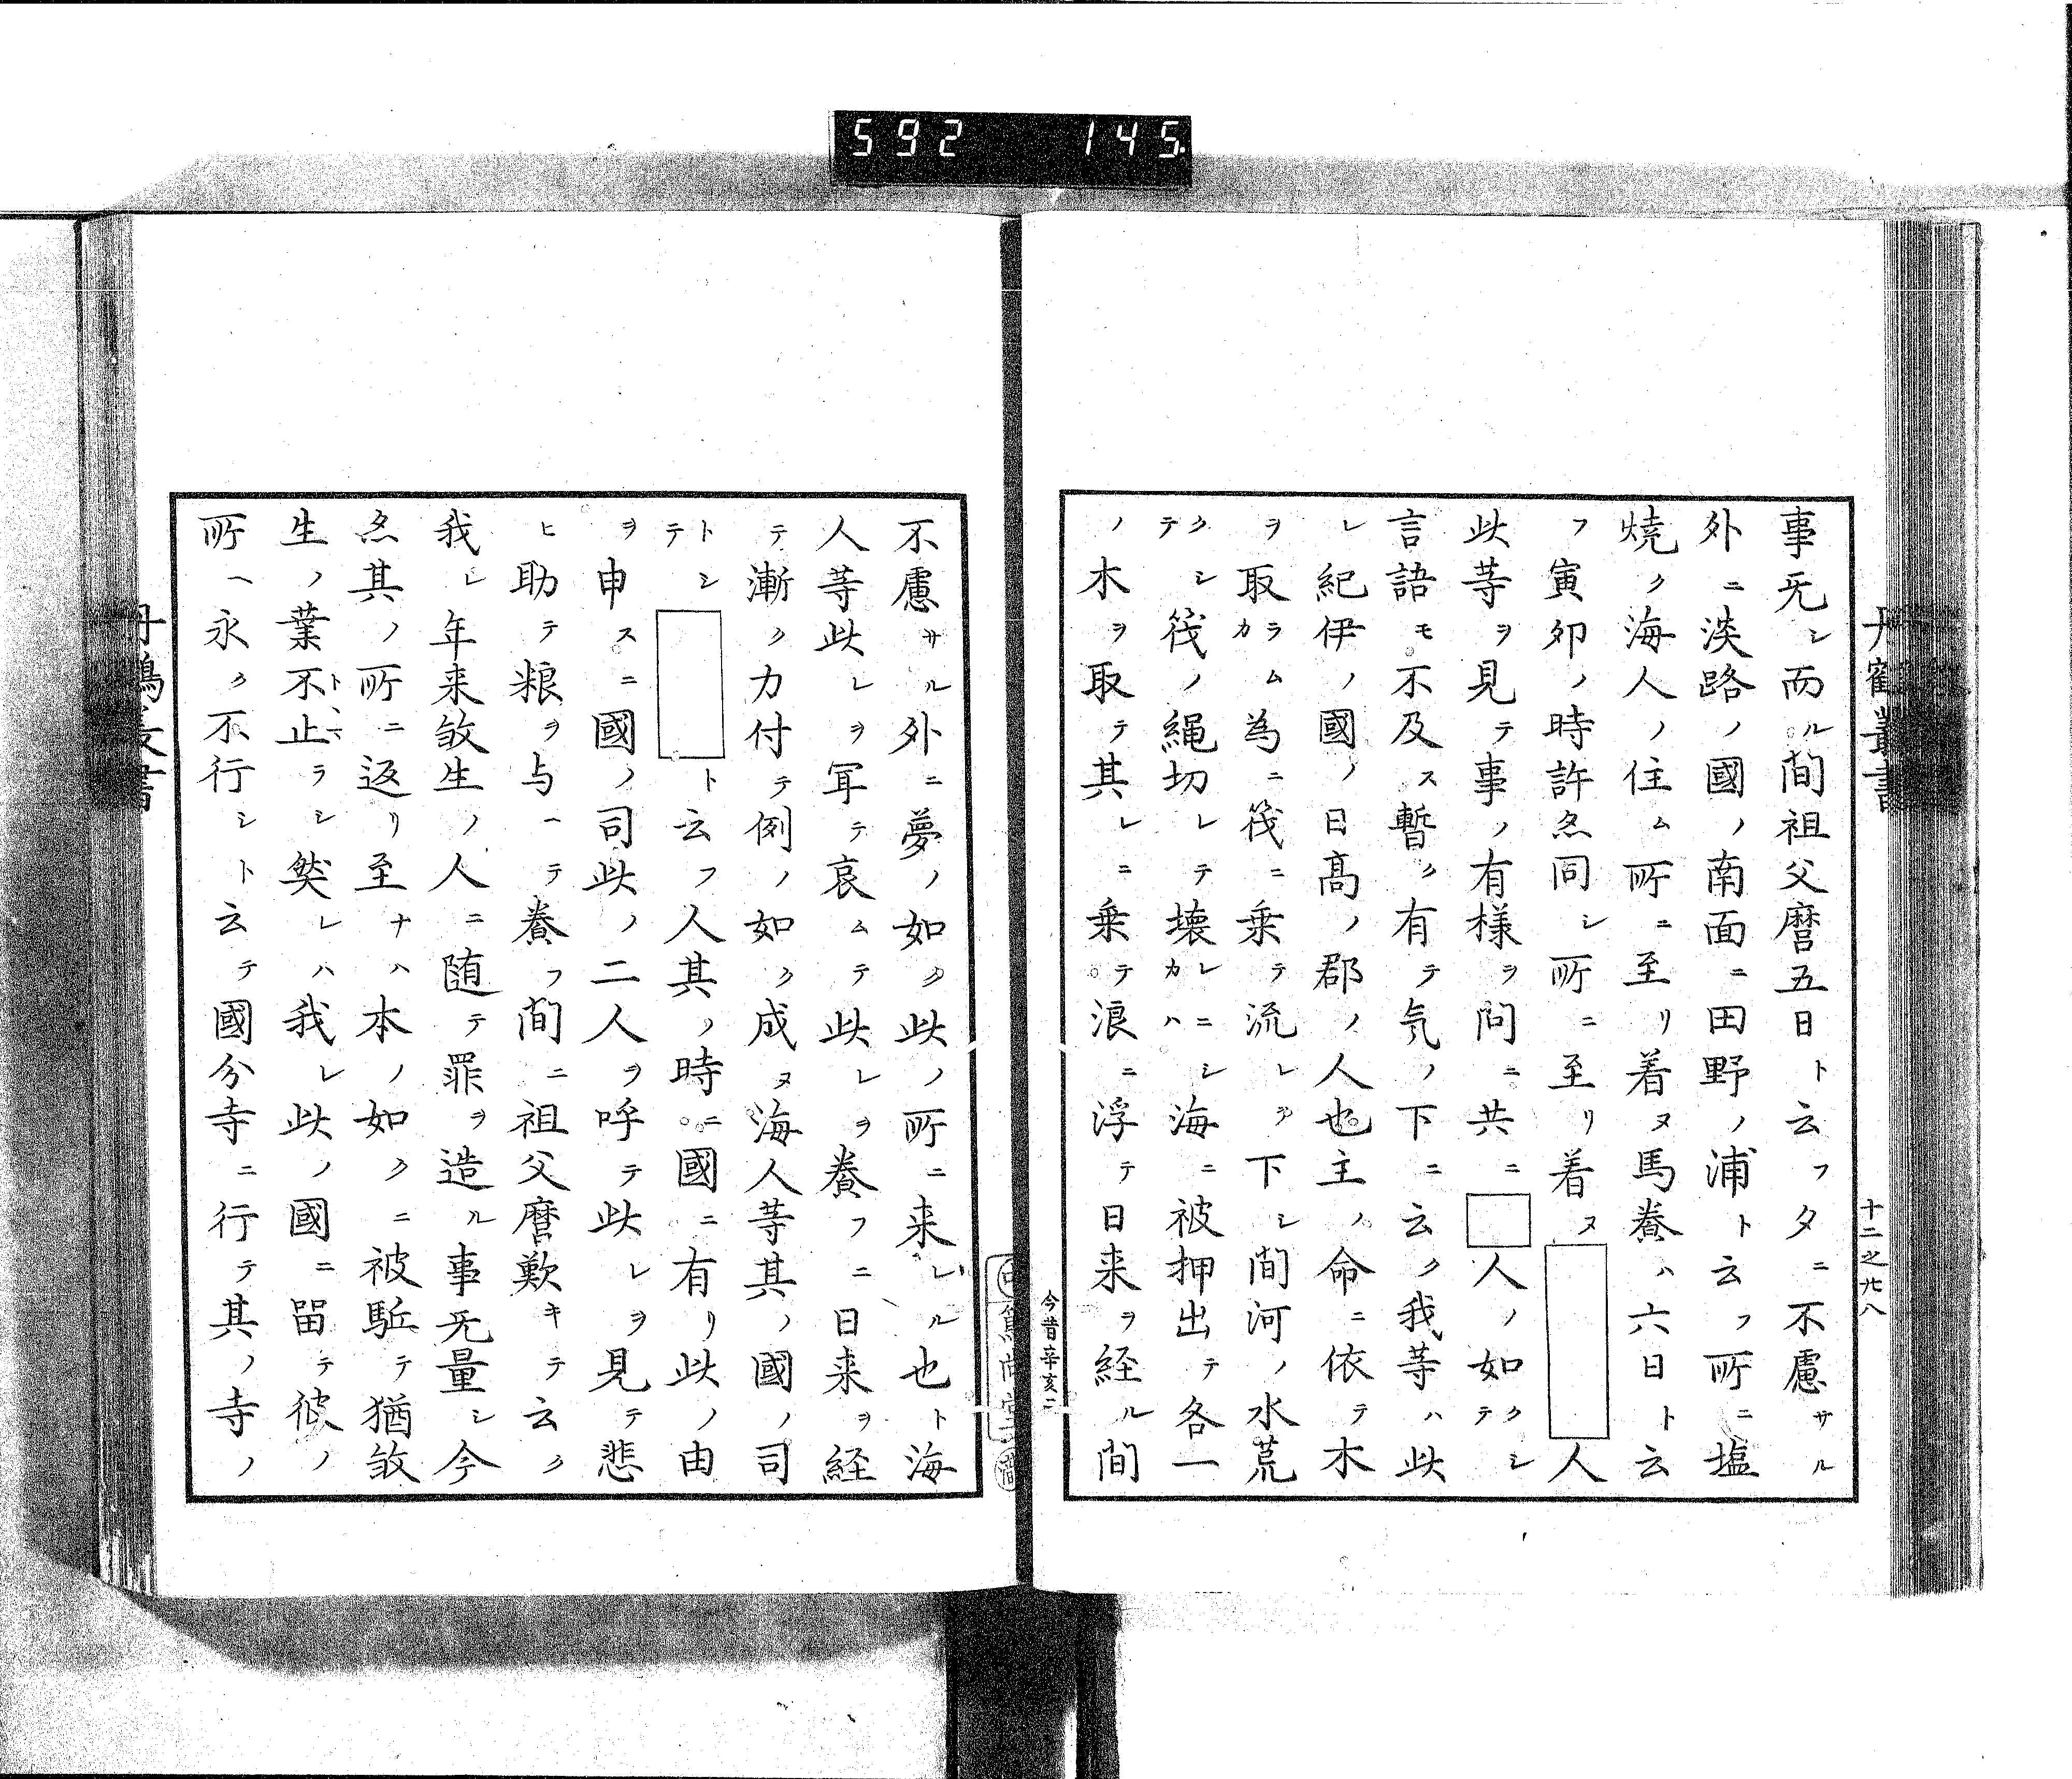 592 145
丹鶴叢書
十二之卅八
事旡シ而ル間祖父麿五日ト云フタニ不慮サル
外ニ淡路ノ國ノ南面ニ田野ノ浦ト云フ所ニ塩
焼ク海人ノ住ム所ニ至リ着ヌ馬養ハ六日ト云
フ寅卯ノ時許尓同シ所ニ至リ着ヌ□人
此等ヲ見テ事ノ有様ヲ問ニ共ニ□人ノ如クシテ
言語モ不及ス暫ク有テ気ノ下ニ云ク我等ハ此
レ紀伊ノ國ノ日髙ノ郡ノ人也主ノ命ニ依テ木
ヲ取ラムカ為ニ筏ニ乗テ流レヲ下シ間河ノ水荒
クシテ筏ノ縄切レテ壊レニシカハ海ニ被押出テ各一
ノ木ヲ取テ其レニ乗テ浪ニ浮テ日来ヲ経ル間
今昔辛亥二
不慮サル外ニ夢ノ如ク此ノ所ニ来レル也ト海
人等此レヲ聞テ哀ムテ此レヲ養フニ日来ヲ経
テ漸ク力付テ例ノ如ク成ヌ海人等其ノ國ノ司
トシテ□ト云フ人其ノ時ニ國ニ有リ此ノ由
ヲ申スニ國ノ司此ノ二人ヲ呼テ此レヲ見テ悲
ヒ助テ粮ヲ与ヘテ養フ間ニ祖父麿歎キテ云ク
我レ年来敓生ノ人ニ随テ罪ヲ造ル事旡量シ今
尓其ノ所ニ返リ至ナハ本ノ如クニ被駈テ猶敓
生ノ業不止ラシ然レハ我レ此ノ國ニ留テ彼ノ
所ヘ永ク不行シト云テ國分寺ニ行テ其ノ寺ノ